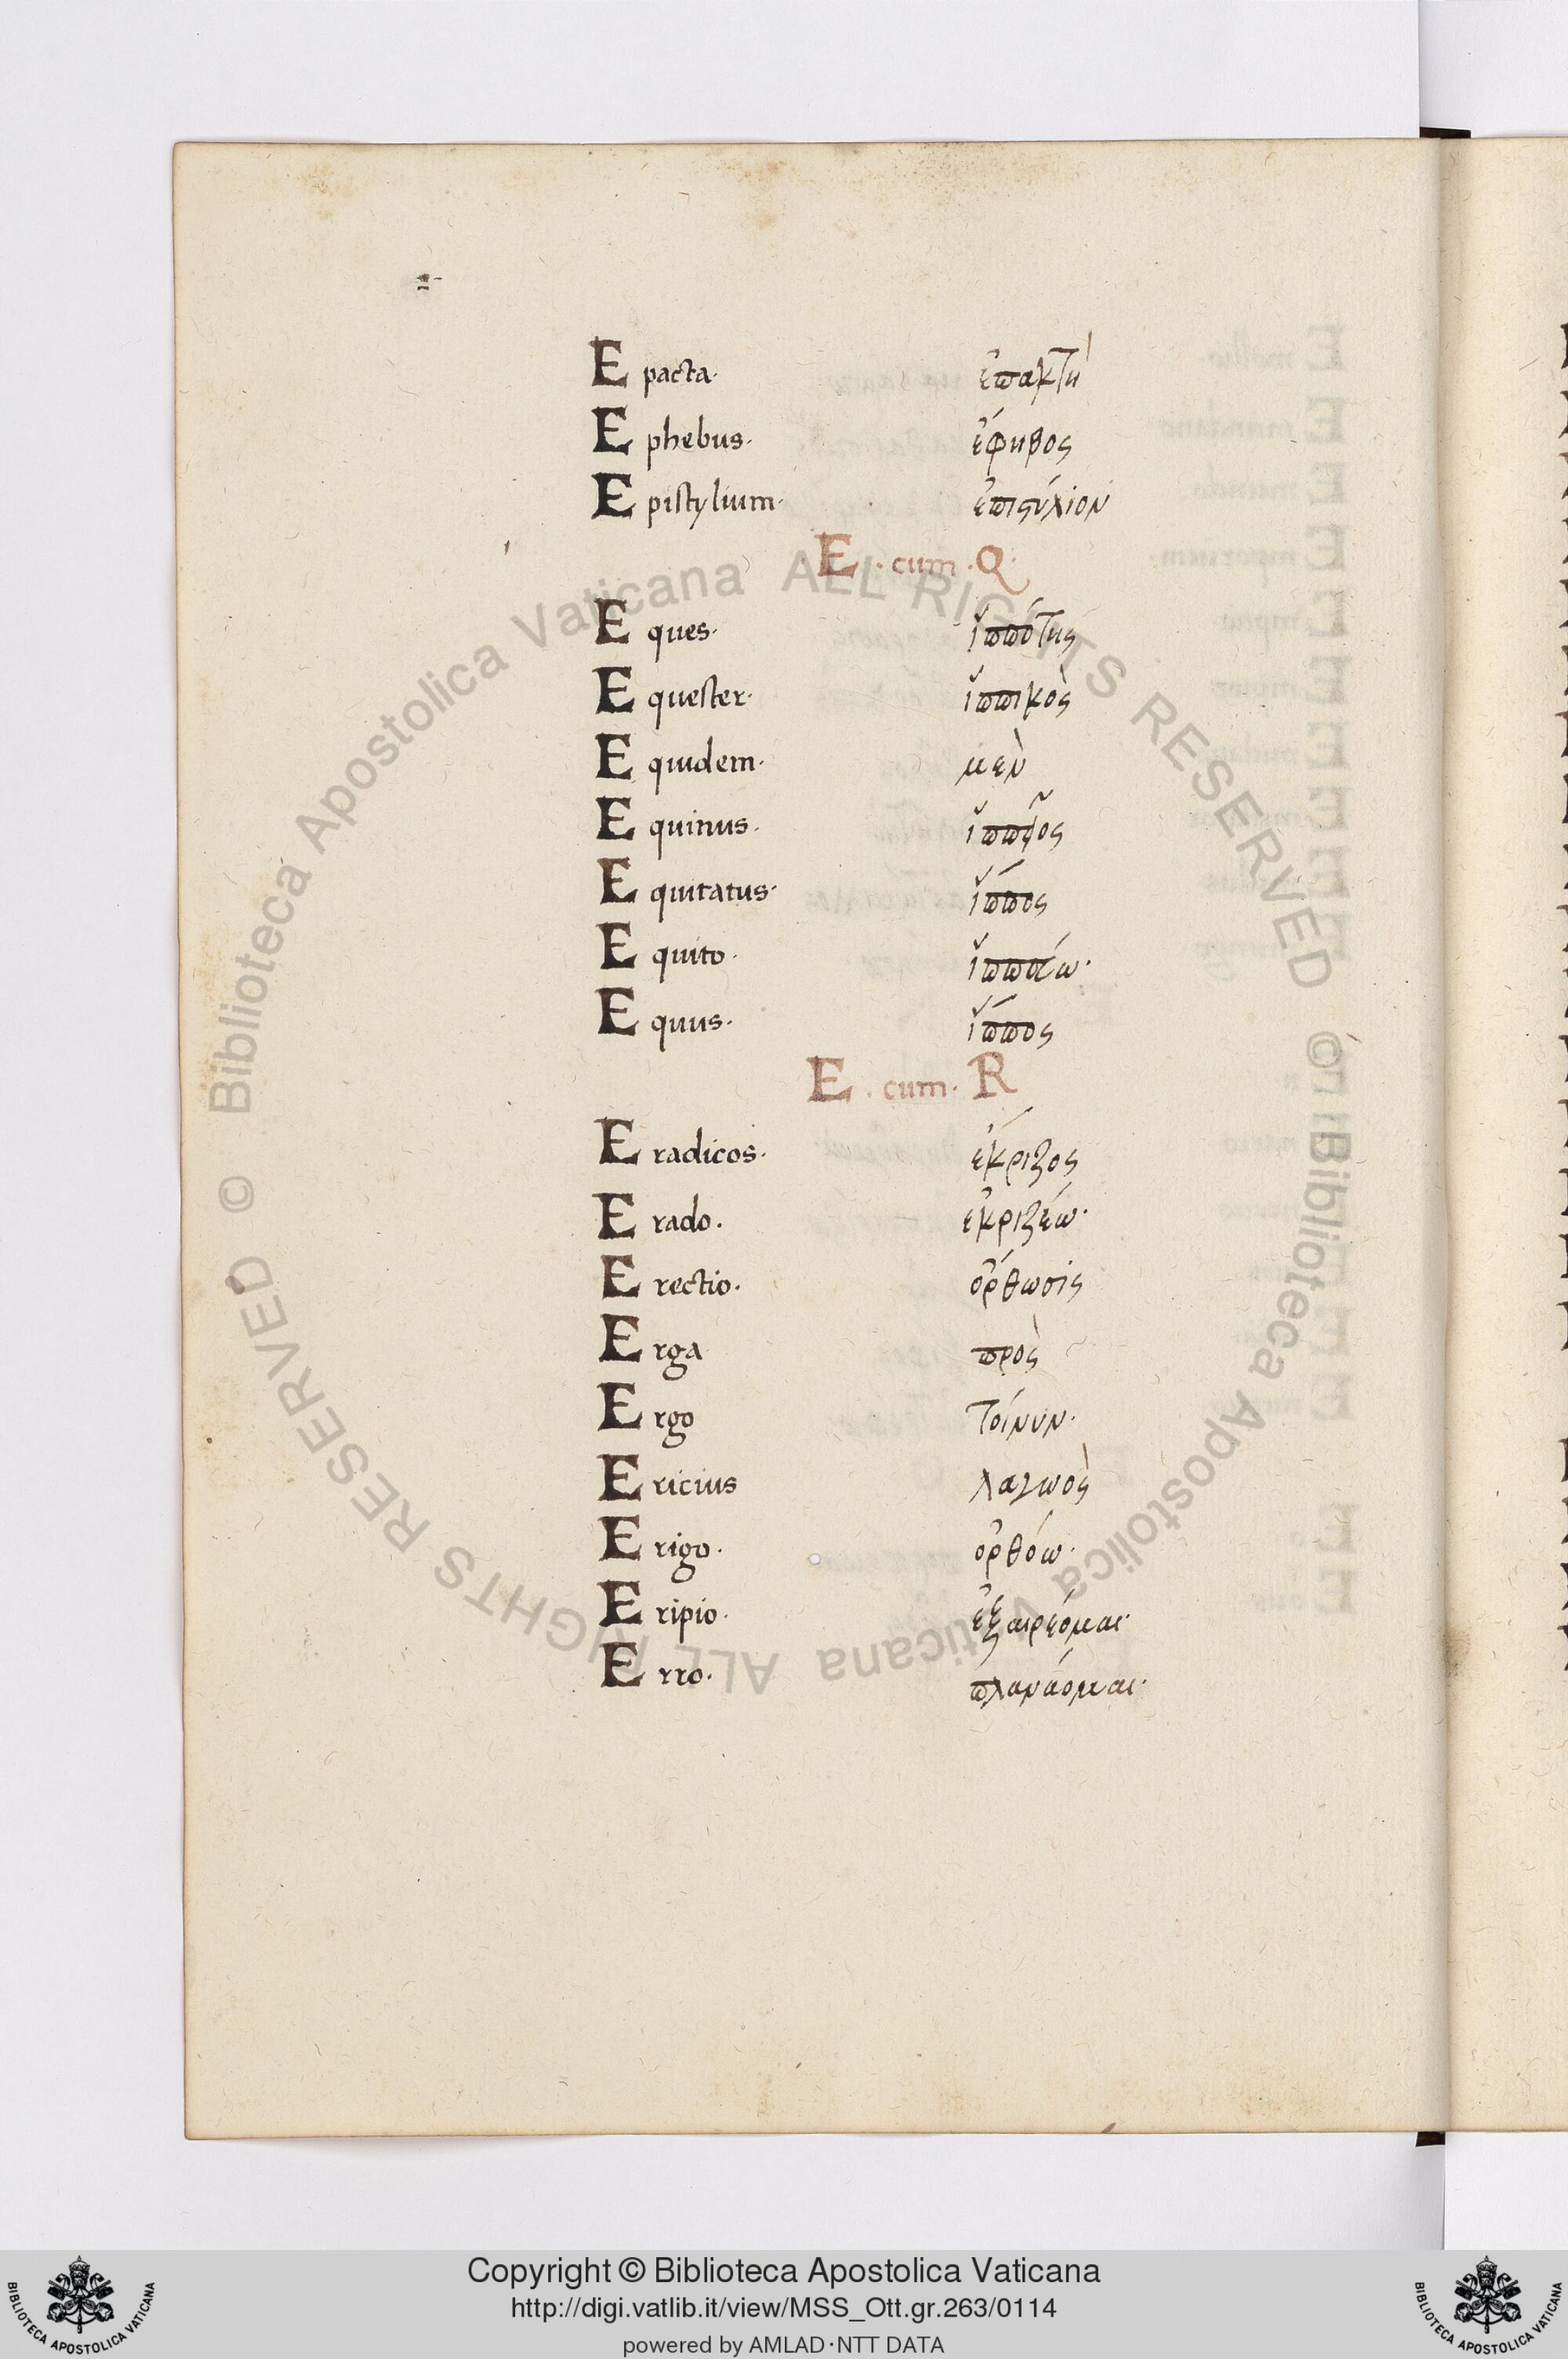 Epacta· ἐπακτὴ
Ephebus· ἔφηβος
Epistylium· ἐπιστύλιον
E · cum · Q·
Eques· ἱππότης
Equester· ἱππικὸς
Equidem· μὲν
Equinus· ἱππεῖος
Equitatus· ἵππος
Equito· ἱπποτέω·
Equus· ἵππος
E · cum · R
Eradicos· ἔκριζος
Erado· ἐκριζέω·
Erectio· ὄρθωσις
Erga πρὸς
Ergo τοίνυν·
Ericius λαγωὸς
Erigo· ὀρθόω·
Eripio· ἐξαιρέομαι·
Erro· πλανάομαι·
© Biblioteca Apostolica Vaticana ALL RIGHTS RESERVED
© Biblioteca Apostolica Vaticana ALL RIGHTS RESERVED
Copyright © Biblioteca Apostolica Vaticana
http://digi.vatlib.it/view/MSS_Ott.gr.263/0114
powered by AMLAD·NTT DATA
BIBLIOTECA APOSTOLICA VATICANA
BIBLIOTECA APOSTOLICA VATICANA